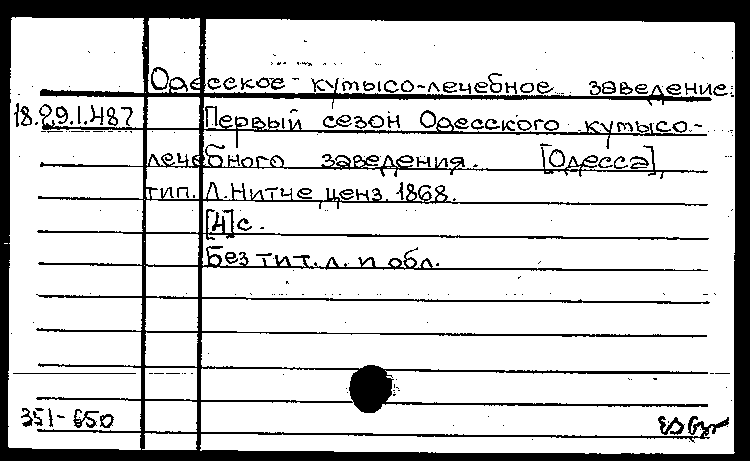 Одесское кумысо-лечебное заведение.
18.29.1.487
Первый сезон Одесского кумысо-
лечебного заведения. [Одесса],
тип. Л. Нитче, ценз. 1868.
[4] с.
Без тит. л. и обл.
351-650